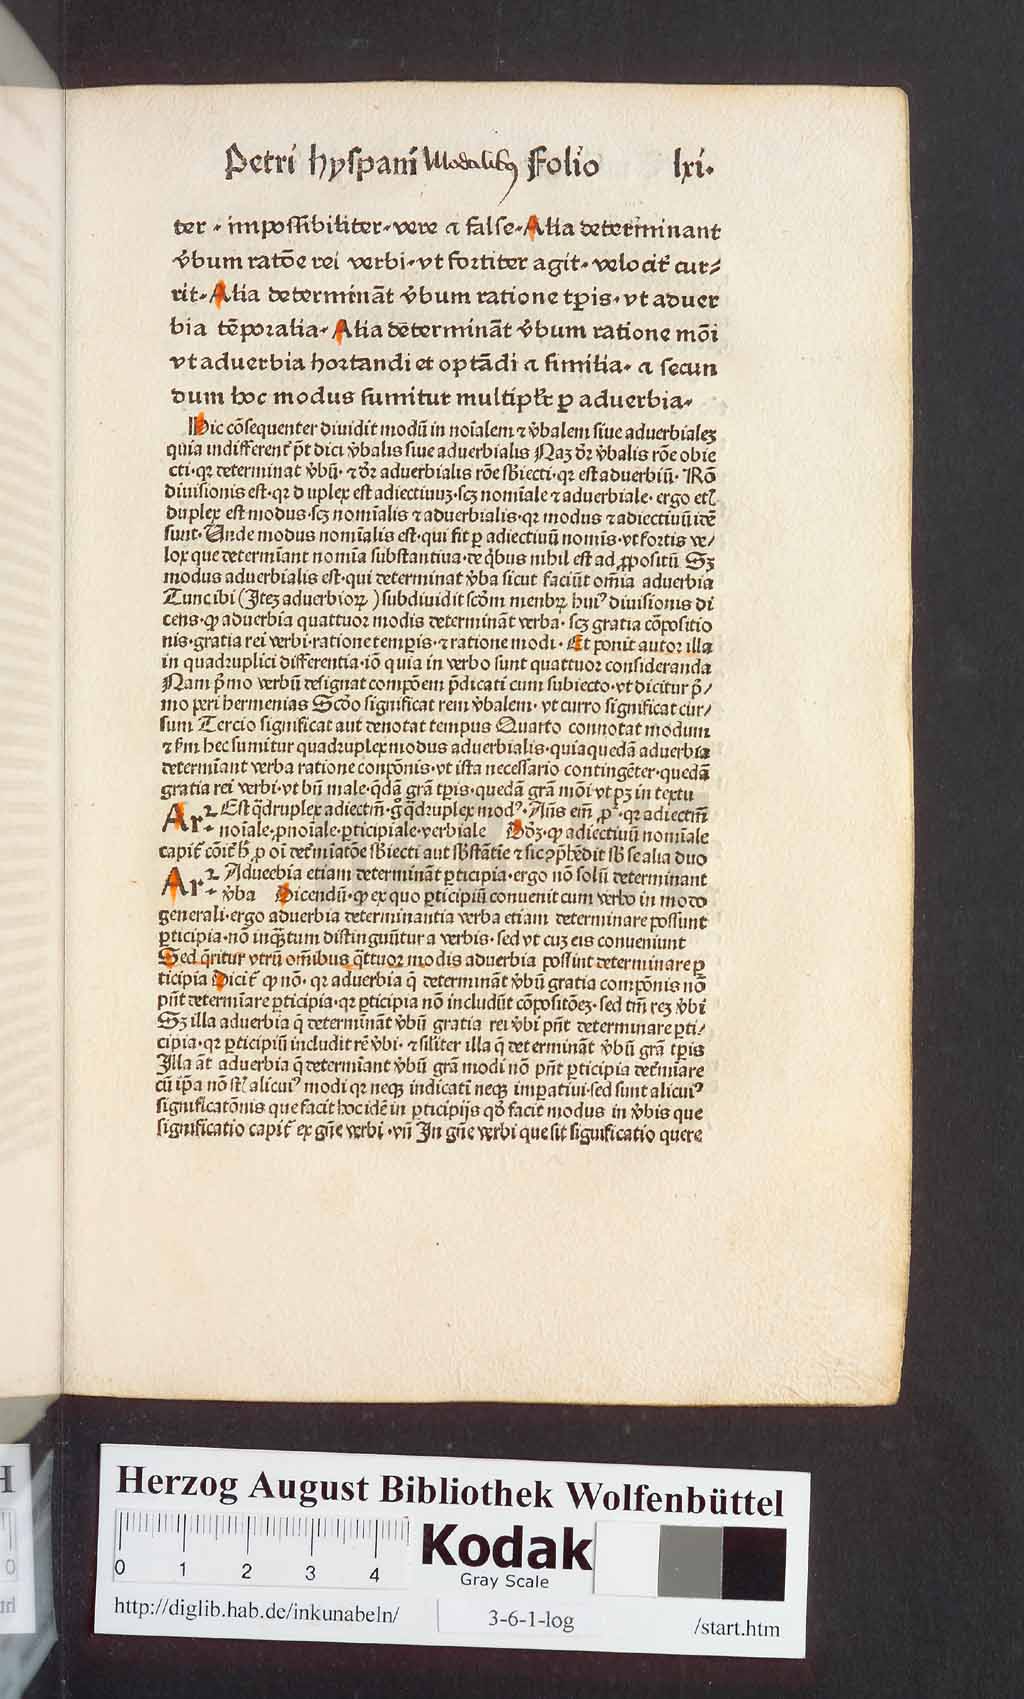 Petri hyspani Modalibꝫ Folio lxi.
ter · impossibiliter · vere ⁊ false · Alia determinant
v̄bum ratōe rei verbi · vt fortiter agit · velocit̄ cur⸗
rit · Alia determināt v̄bum ratione tꝑis · vt aduer
bia tēporalia · Alia dētermināt v̄bum ratione mōi
vt aduerbia hortandi et optādi ⁊ similia · ⁊ secun
dum hoc modus sumitur multipłr ꝑ aduerbia ·
Hic cōsequenter diuidit modū in noīalem ⁊ v̄balem siue aduerbialeꝫ
quia indifferent̄ p̄t dici v̄balis siue aduerbialis Naꝫ dr̄ v̄balis rōe obie
cti · qꝛ determinat v̄bū · ⁊ dr̄ aduerbialis rōe sb̄iecti · qꝛ est aduerbiū · Rō
diuisionis est · qꝛ duplex est adiectiuuꝫ · scꝫ nomīale ⁊ aduerbiale · ergo etī
duplex est modus · scꝫ nomīalis ⁊ aduerbialis · qꝛ modus ⁊ adiectiuū idē
sunt · Unde modus nomīalis est · qui fit ꝑ adiectiuū nomīs · vt fortis ve/
lox que determīant nomīa substantiua · de q̄bus nihil est ad ꝓpositū Sꝫ
modus aduerbialis est · qui determinat v̄ba sicut faciūt om̄ia aduerbia
Tunc ibi (Iteꝫ aduerbioꝝ) subdiuidit scd̄m menbꝝ huiꝰ diuisionis di
cens · ꝙ aduerbia quattuor modis determināt verba · scꝫ gratia cōpositio
nis · gratia rei verbi · ratione temꝑis · ⁊ ratione modi · Et ponit autor illa
in quadruplici differentia · iō quia in verbo sunt quattuor consideranda
Nam p̄mo verbū designat compōem p̄dicati cum subiecto · vt dicitur p̄/
mo peri hermenias Scd̄o significat rem v̄balem · vt curro significat cur/
sum Tercio significat aut denotat tempus Quarto connotat modum
⁊ sm̄ hec sumitur quadruplex modus aduerbialis · quia quedā aduerbia
determīant verba ratione conpōnis · vt ista necessario contingēter · quedā
gratia rei verbi · vt bn̄ male · q̄dā grā tꝑis · quedā grā mōi vt pꝫ in textu
Ar² Est q̄druplex adiectm̄ · g̊ q̄druplex modꝰ · Añs em̄ ꝓꝰ · qꝛ adiectm̄
noīale · ꝓnoīale · ꝑticipiale · verbiale Dōꝫ · ꝙ adiectiuū nomīale
capit̄ cōit̄ ꝓ oī det̄mīatōe sb̄iecti aut sb̄stātie ⁊ sic ꝯp̄hēdit sb̄ se alia duo
Ar² Aduecbia etiam determināt ꝑticipia · ergo nō solū determinant
v̄ba Dicendū · ꝙ ex quo ꝑticipiū conuenit cum verbo in modo
generali · ergo aduerbia determinantia verba etiam determinare possunt
ꝑticipia · nō inq̄tum distinguūtur a verbis · sed vt cuꝫ eis conueniunt
Sed q̄ritur vtrū om̄ibus q̄ttuor modis aduerbia possint determinare ꝑ
ticipia Dicit̄ ꝙ nō · qꝛ aduerbia q̄ determināt v̄bū gratia compōnis nō
pn̄t determīare ꝑticipia · qꝛ ꝑticipia nō includūt cōpositōeꝫ · sed tm̄ reꝫ v̄bi
Sꝫ illa aduerbia q̄ determināt v̄bū gratia rei v̄bi pn̄t determinare ꝑti/
cipia · qꝛ ꝑticipiū includit rē v̄bi · ⁊ siliter illa q̄ determināt v̄bū grā tꝑis
Illa āt aduerbia q̄ determīant v̄bū grā modi nō pn̄t ꝑticipia det̄mīare
cū ip̄a nō st̄ alicuiꝰ modi qꝛ neqꝫ indicati neqꝫ imꝑatiui · sed sunt alicuiꝰ
significatōnis que facit hoc idē in ꝑticipijs qd̄ facit modus in v̄bis que
significatio capit̄ ex gn̄e verbi · vn̄ In gn̄e verbi que sit significatio quere
Herzog August Bibliothek Wolfenbüttel
0 1 2 3 4
Kodak
Gray Scale
http://diglib.hab.de/inkunabeln/
3-6-1-log
/start.htm